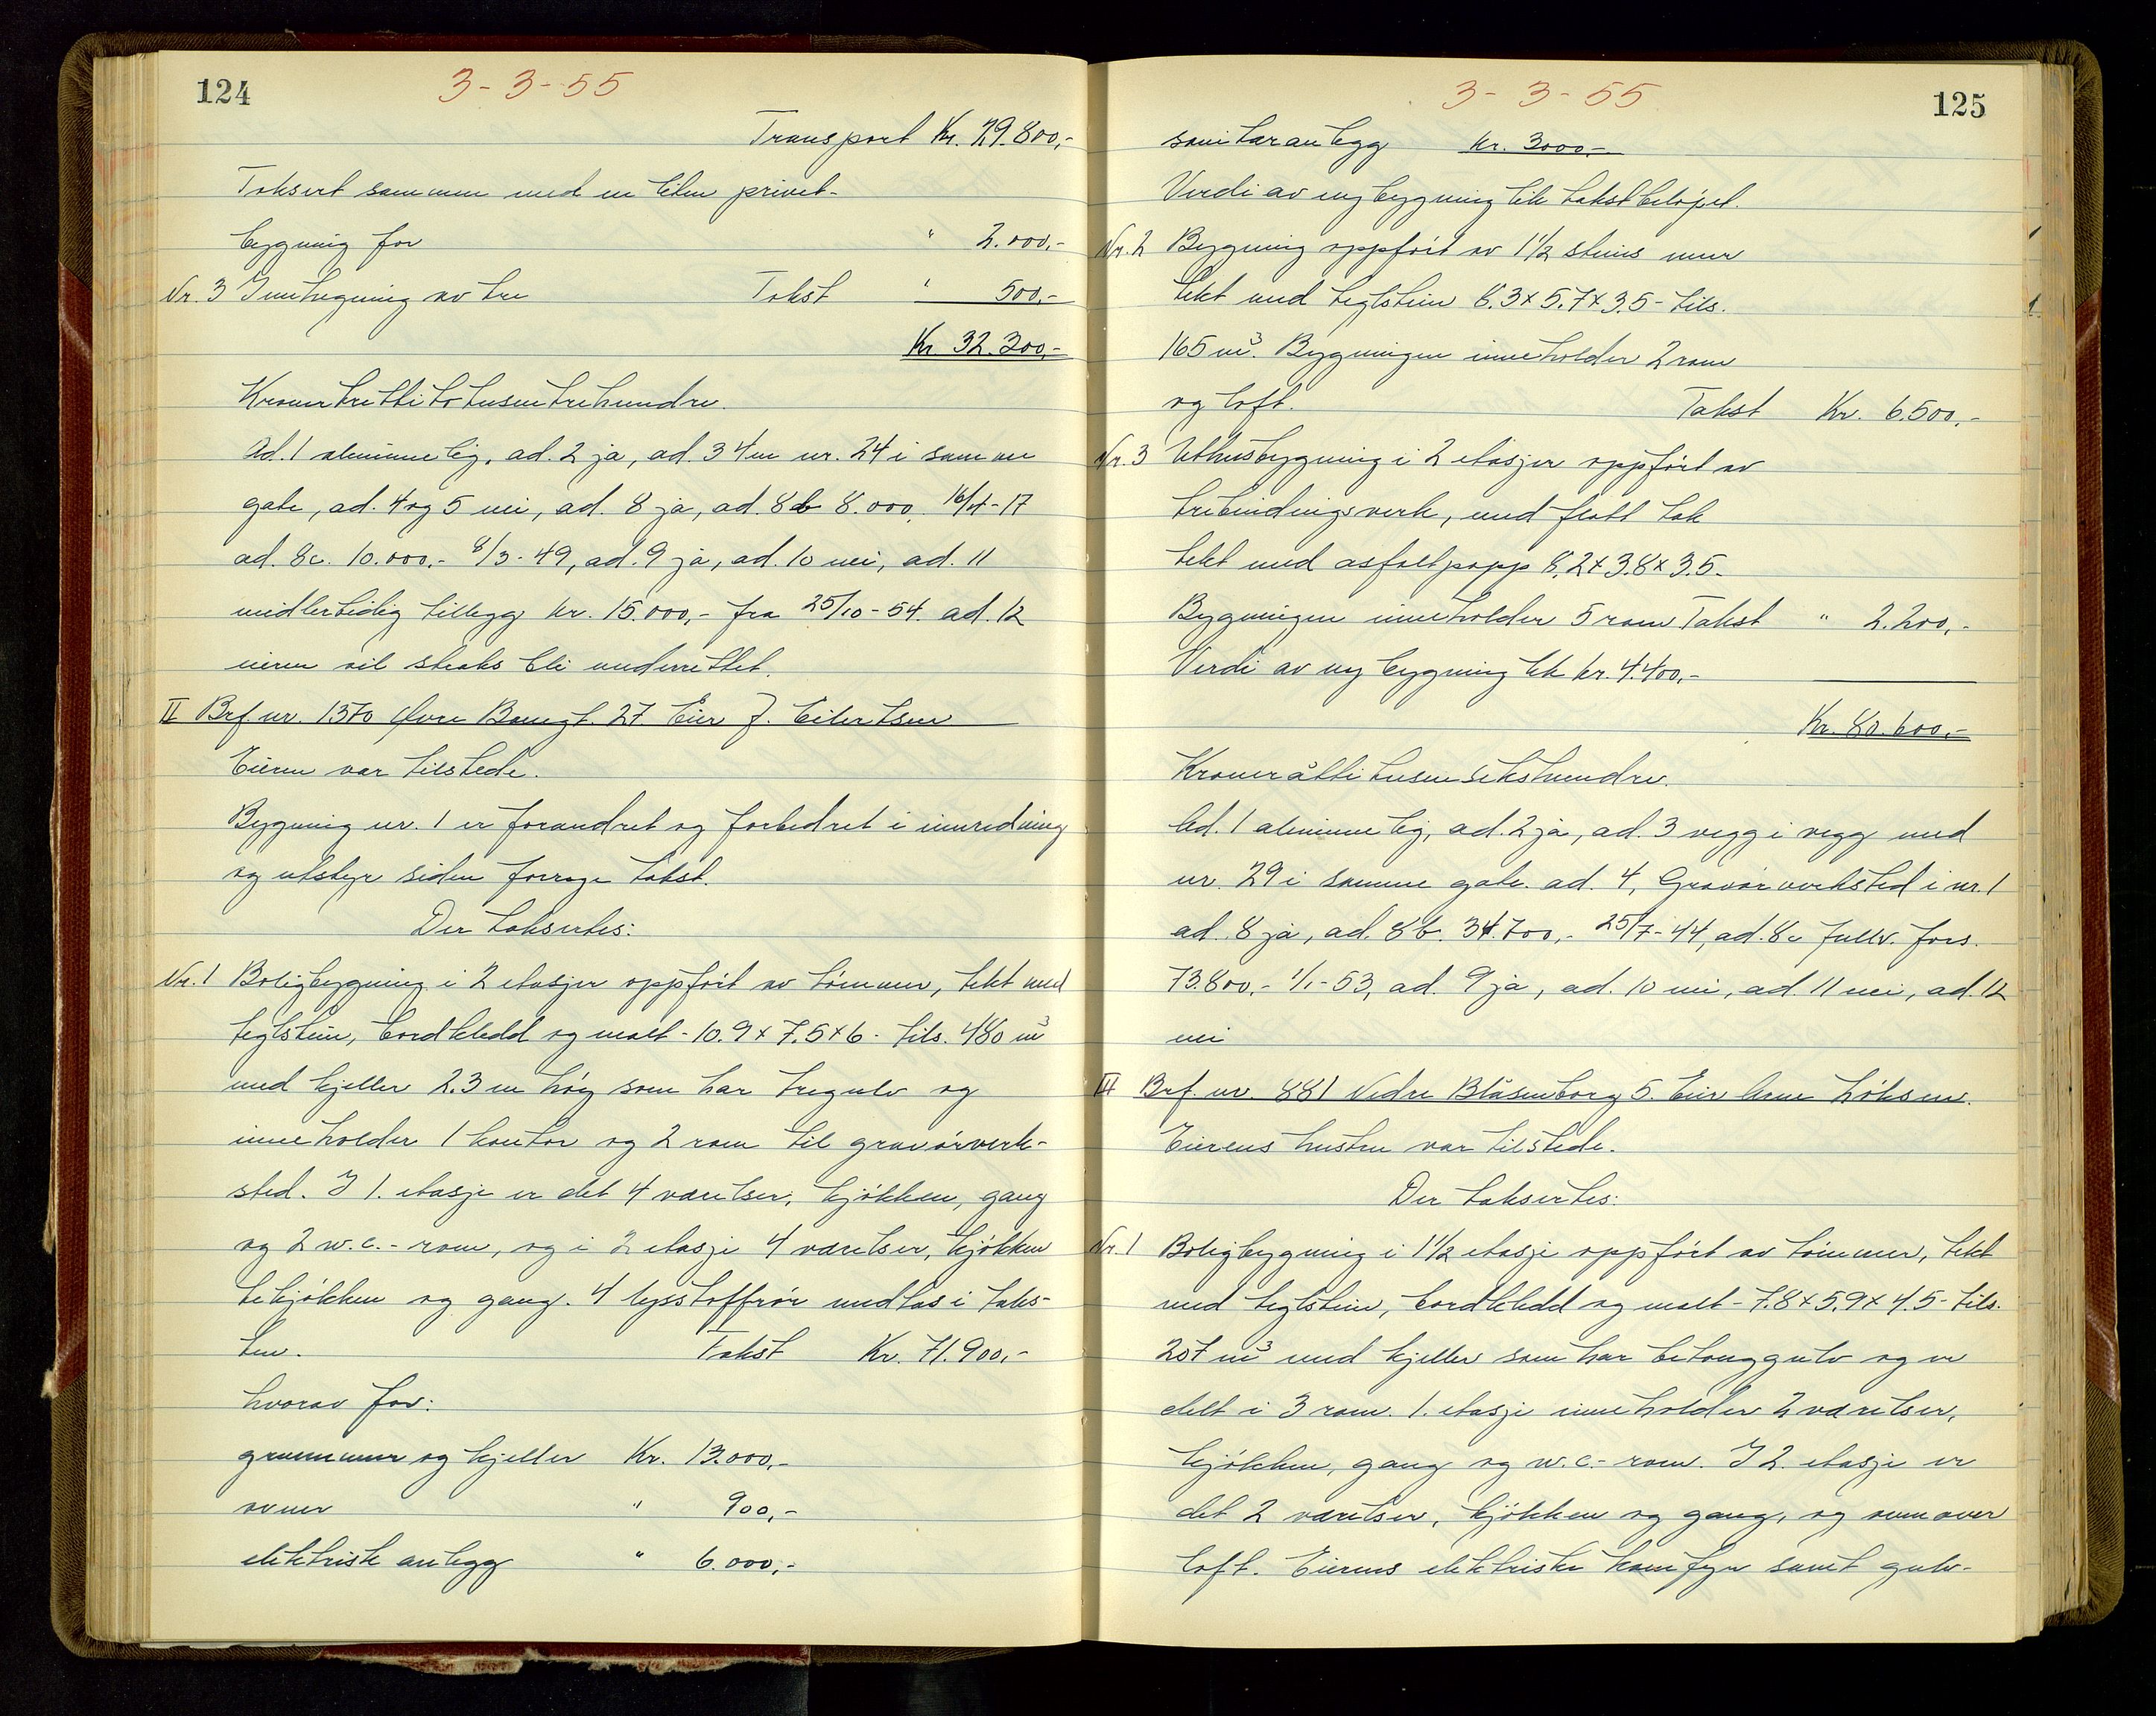 124
3-3-55
Transport Kr. 29.800,-
Taksert sammen med en liten privet-
bygning for " 2.000,-
Nr. 3 Innhegning av tre Takst " 500,-
Kr. 32.300,-
Kroner trettitotusentrehundre.
Ad. 1 alminnelig, ad. 2 ja, ad. 3 4m nr. 24 i samme
gate, ad. 4 og 5 nei, ad. 8 ja, ad. 8b 8.000, 16/4-17
ad. 8c. 10.000.- 8/3-49, ad. 9 ja, ad. 10 nei, ad. 11
midlertidig tillegg kr. 15.000,- fra 25/10-54. ad. 12
eieren vil straks bli underrettet.
II Brf. nr. 1370 Øvre Banegt. 27 Eier J. Eilertsen
Eieren var tilstede.
Bygning nr. 1 er forandret og forbedret i innredning
og utstyr siden forrige takst.
Der taksertes:
Nr. 1 Boligbygning i 2 etasjer oppført av tømmer, tekt med
teglstein, bordkledd og malt - 10.9 x 7.5 x 6 - tils. 480 m³
med kjeller 2.3 m høy som har tregulv og
inneholder 1 kontor og 2 rom til gravørverk-
sted. I 1. etasje er det 4 værelser, kjøkken, gang
og 2 w.c.-rom, og i 2 etasje 4 værelser, kjøkken
tekjøkken og gang. 4 lysstoffrør medtas i taks-
ten. Takst Kr. 71.900,-
hvorav for:
grunnmur og kjeller Kr. 13.000,-
ovner " 900,-
elektrisk anlegg " 6.000,-
125
3-3-55
sanitæranlegg kr. 3000,-
Verdi av ny bygning lik takstbeløpet.
Nr. 2 Bygning oppført av 1½ steins mur
tekt med teglstein 8.3 x 5.7 x 3.5 - tils.
165 m³. Bygningen inneholder 2 rom
og loft. Takst Kr. 6.500,-
Nr. 3 Uthusbygning i 2 etasjer oppført av
trebindingsverk, med flatt tak
tekt med asfaltpapp 8.2 x 3.8 x 3.5.
Bygningen inneholder 5 rom Takst " 2.200,-
Verdi av ny bygning lik kr. 4.400,-
Kr. 80.600,-
Kroneråttitusensekshundre.
Ad. 1 alminnelig, ad. 2 ja, ad. 3 vegg i vegg med
nr. 29 i samme gate. ad. 4, Gravørverksted i nr. 1
ad. 8 ja, ad. 8b. 34.700,- 25/7-44, ad. 8c fullv. fors.
73.800,- 1/1-53, ad. 9 ja, ad. 10 nei, ad. 11 nei, ad. 12
nei
III Brf. nr. 881 Nedre Blåsenborg 5. Eier Arne Løksen.
Eierens hustru var tilstede.
Der taksertes:
Nr. 1 Boligbygning i 1½ etasje oppført av tømmer, tekt
med teglstein, bordkledd og malt - 7.8 x 5.9 x 4.5 - tils.
207 m³ med kjeller som har betonggulv og er
delt i 3 rom. 1. etasje inneholder 2 værelser,
kjøkken, gang og w.c.-rom. I 2. etasje er
det 2 værelser, kjøkken og gang, og ovenover
loft. Eierens elektriske komfyr samt gulv-